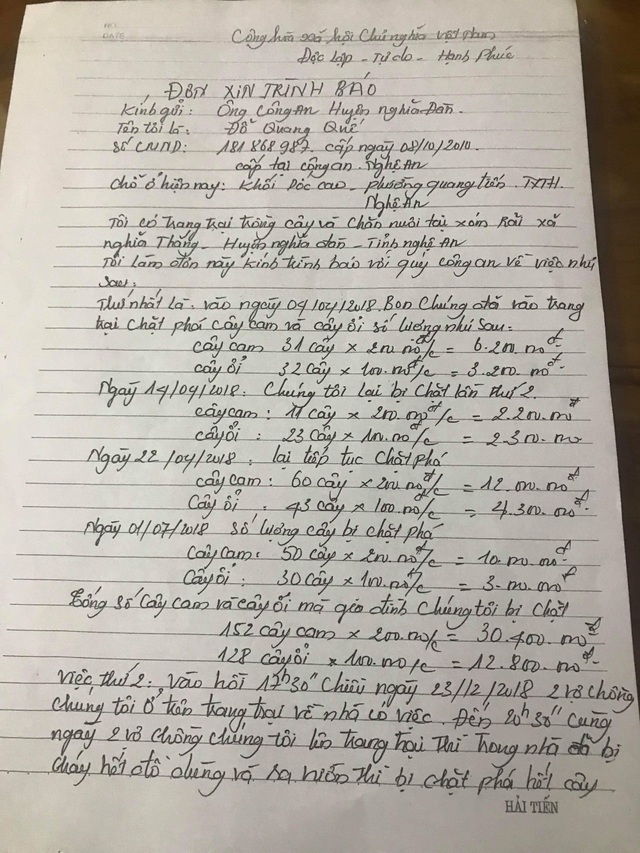 NO.
DATE
Cộng hòa xã hội Chủ nghĩa việt Nam
Độc lập - Tự do - Hạnh Phúc
ĐƠN XIN TRÌNH BÁO
Kính gửi: Ông CôngAn Huyện nghĩa Đàn.
Tên tôi là: Đỗ Quang Quế
Số CMND: 181868987. cấp ngày 08/10/2010.
cấp tại công an. Nghệ An
Chỗ ở hiện nay: Khối Dốc cao - phường quang tiến. TXTH.
Nghệ An
Tôi có trang trại trồng cây và Chăn nuôi tại xóm Rải xã
nghĩa Thắng - Huyện nghĩa đàn - Tỉnh nghệ An
Tôi làm đơn này Kính trình báo với quý công an về việc như
sau:
Thứ nhất là. vào ngày 04/04/2018. Bọn Chúng đã vào trang
trại Chặt phá cây cam và cây ổi số lượng như sau:
cây cam 31 cây x 200.000đ/c = 6.200.000đ
cây ổi 32 cây x 100.000đ/c = 3.200.000đ
Ngày 14/04/2018: Chúng tôi lại bị Chặt lần thứ 2.
cây cam: 11 cây x 200.000đ/c = 2.200.000đ
cây ổi: 23 cây x 100.000đ/c = 2.300.000
Ngày 22/04/2018: lại tiếp tục Chặt phá
cây cam: 60 cây x 200.000đ/c = 12.000.000đ
Cây ổi: 43 cây x 100.000đ/c = 4.300.000đ
Ngày 01/07/2018 Số lượng cây bị chặt phá
Cây cam: 50 cây x 200.000đ/c = 10.000.000đ
Cây ổi: 30 cây x 100.000đ/c = 3.000.000đ
Tổng số Cây cam và cây ổi mà gia đình Chúng tôi bị chặt
152 cây cam x 200.000/c = 30.400.000đ
128 cây ổi x 100.000/c = 12.800.000đ
việc thứ 2: vào hồi 17h30" Chiều ngày 23/12/2018 2 vợ chồng
chúng tôi ở trên trang trại về nhà có việc. Đến 20h30" cùng
ngày 2 vợ chồng chúng tôi lên trang trại thì Trong nhà đã bị
cháy hết đồ dùng và ra vườn thì bị chặt phá hết cây
HẢI TIẾN